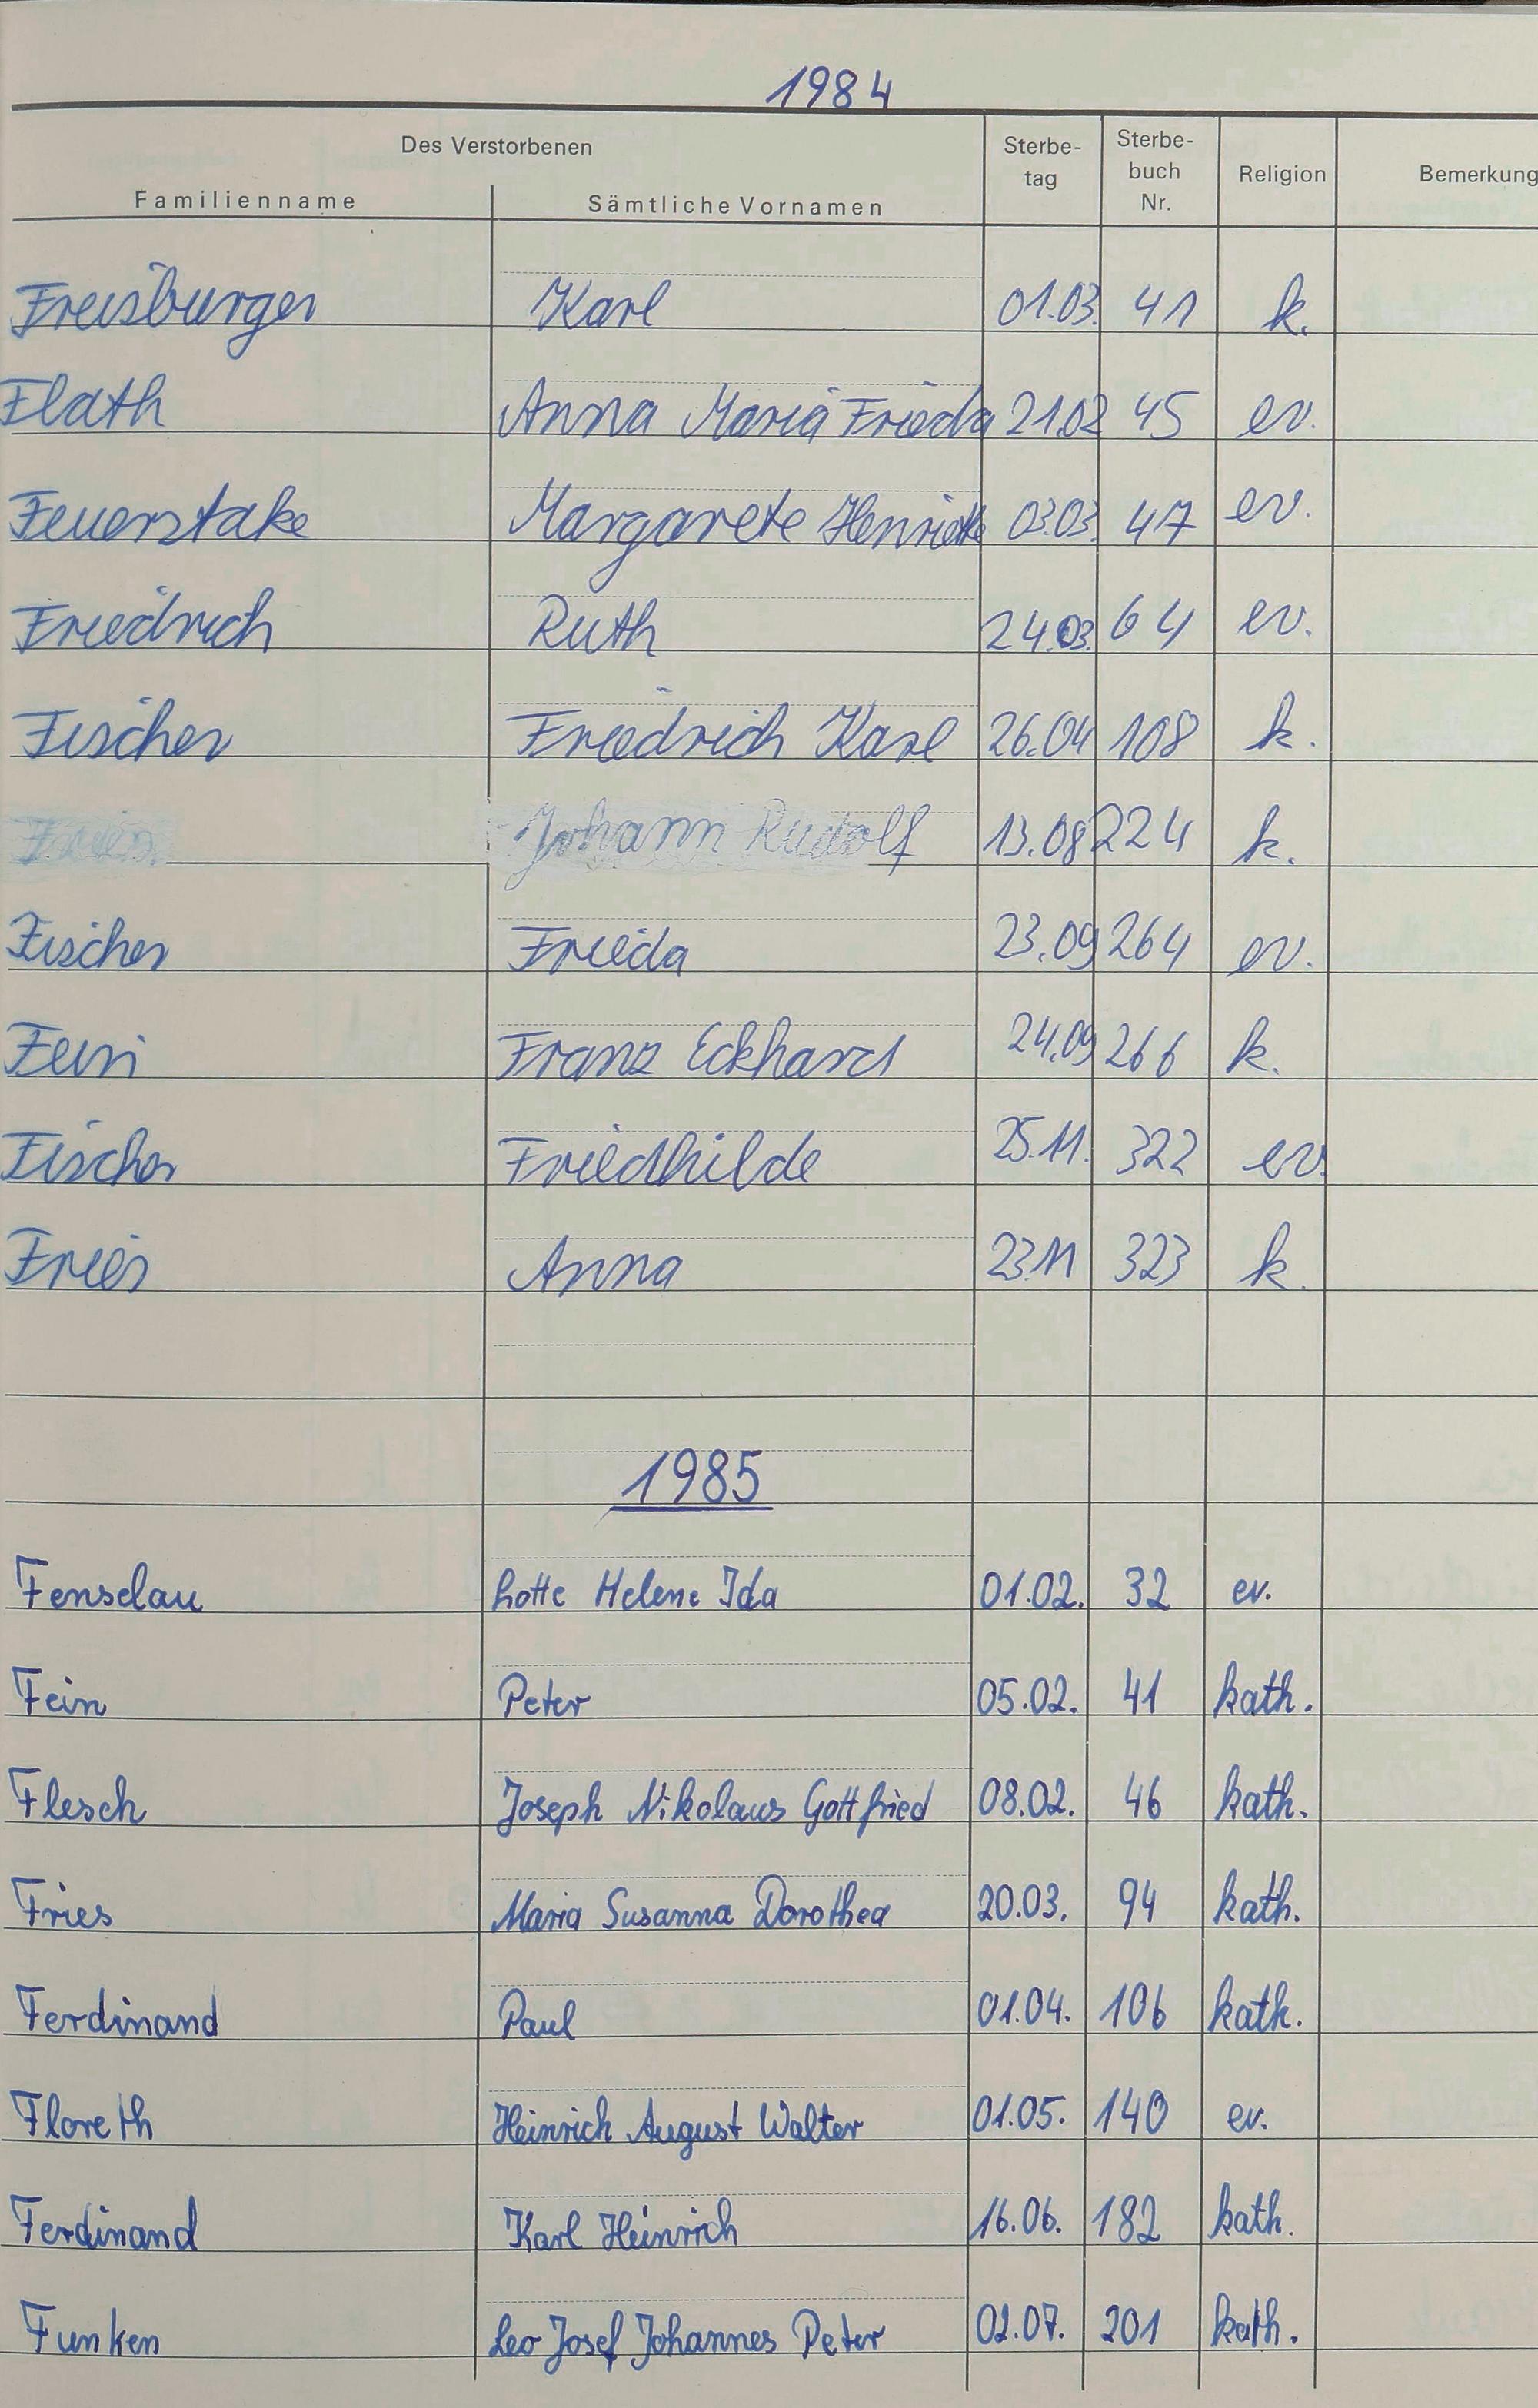 1984
Des Verstorbenen Sterbe- Sterbe-
tag buch Religion Bemerkung
Familienname Sämtliche Vornamen Nr.
Freisburger Karl 01.03. 41 k.
Flath Anna Maria Frieda 21.02 45 ev.
Feuerstake Margarete Henriette 03.03. 47 ev.
Friedrich Ruth 24.03. 64 ev.
Fischer Friedrich Karl 26.04 108 k.
Johann Rudolf 13.08 224 k.
Fischer Frieda 23.09 264 ev.
Franz Eckhard 24.09 266 k.
Fischer Friedhilde 25.11. 322 ev.
Fries Anna 23.11 323 k.
1985
Fenselau Lotte Helene Ida 01.02. 32 ev.
Fein Peter 05.02. 41 kath.
Flesch Joseph Nikolaus Gottfried 08.02. 46 kath.
Fries Maria Susanna Dorothea 20.03. 94 kath.
Ferdinand Paul 01.04. 106 kath.
Floreth Heinrich August Walter 01.05. 140 ev.
Ferdinand Karl Heinrich 16.06. 182 kath.
Funken Leo Josef Johannes Peter 02.07. 201 kath.